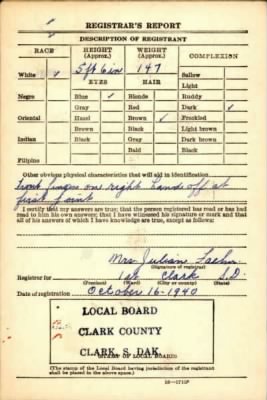 REGISTRAR'S REPORT
DESCRIPTION OF REGISTRANT
RACE HEIGHT (Approx.) WEIGHT (Approx.) COMPLEXION
White ✓ 5 ft 6 in 147 Sallow
EYES HAIR Light
Negro Blue ✓ Blonde Ruddy
Gray Red Dark ✓
Oriental Hazel Brown ✓ Freckled
Brown Black Light brown
Indian Black Gray Dark brown
Bald Black
Filipino
Other obvious physical characteristics that will aid in identification
Front finger on right hand off at
first joint
I certify that my answers are true; that the person registered has read or has had
read to him his own answers; that I have witnessed his signature or mark and that
all of his answers of which I have knowledge are true, except as follows:
Mrs. Julian
(Signature of registrar)
Registrar for 1st Clark S.D.
(Precinct) (Ward) (City or county) (State)
Date of registration October 16 - 1940
LOCAL BOARD
CLARK COUNTY
CLARK, S. DAK.
(STAMP OF LOCAL BOARD)
(The stamp of the Local Board having jurisdiction of the registrant
shall be placed in the above space.)